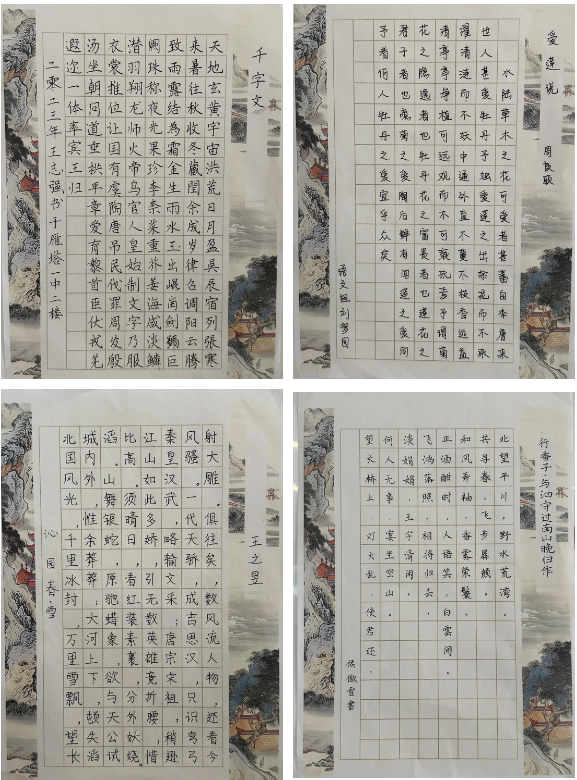 千字文
天地玄黄宇宙洪荒日月盈昃辰宿列張寒
来暑往秋收冬藏闰余成岁律召调阳云腾
致雨露结為霜金生丽水玉出崑岡劍號巨
阙珠称夜光果珍李柰菜重芥姜海咸淡鳞
潜羽翔龙师火帝鸟官人皇始制文字乃服
衣裳推位让国有虞陶唐吊民伐罪周发殷
汤坐朝问道垂拱平章爱育黎首臣伏戎羌
遐迩一体率宾王归
二零二三年王志强书于雁塔一中二楼
爱莲说
周敦颐
水陆草木之花可爱者甚蕃自李唐来
世人甚爱牡丹予独爱莲之出淤泥而不染
濯清涟而不妖中通外直不蔓不枝香远益
清亭亭净植可远观而不可亵玩焉予谓菊
花之隐逸者也牡丹花之富贵者也莲花之
君子者也噫菊之爱陶后鲜有闻莲之爱同
予者何人牡丹之爱宜乎众矣
语文组刘梦园
沁园春·雪
北国风光，千里冰封，万里雪飘，望长
城内外，惟余莽莽；大河上下，顿失滔
滔。山舞银蛇，原驰蜡象，欲与天公试
比高。须晴日，看红装素裹，分外妖娆。
江山如此多娇，引无数英雄竞折腰，惜
秦皇汉武，略输文采；唐宗宋祖，稍逊
风骚。一代天骄，成吉思汗，只识弯弓
射大雕。俱往矣，数风流人物，还看今
王之昱
行香子·与泗守过南山晚归作
北望平川。野水荒湾。
共寻春、飞步孱颜。
和风弄袖，香雾萦鬟。
正酒酣时，人语笑，白雲间。
飞鸿落照，相将归去，
淡娟娟、玉宇清闲。
何人无事，宴坐空山。
望长桥上，灯火乱，使君还。
侯傲雪書